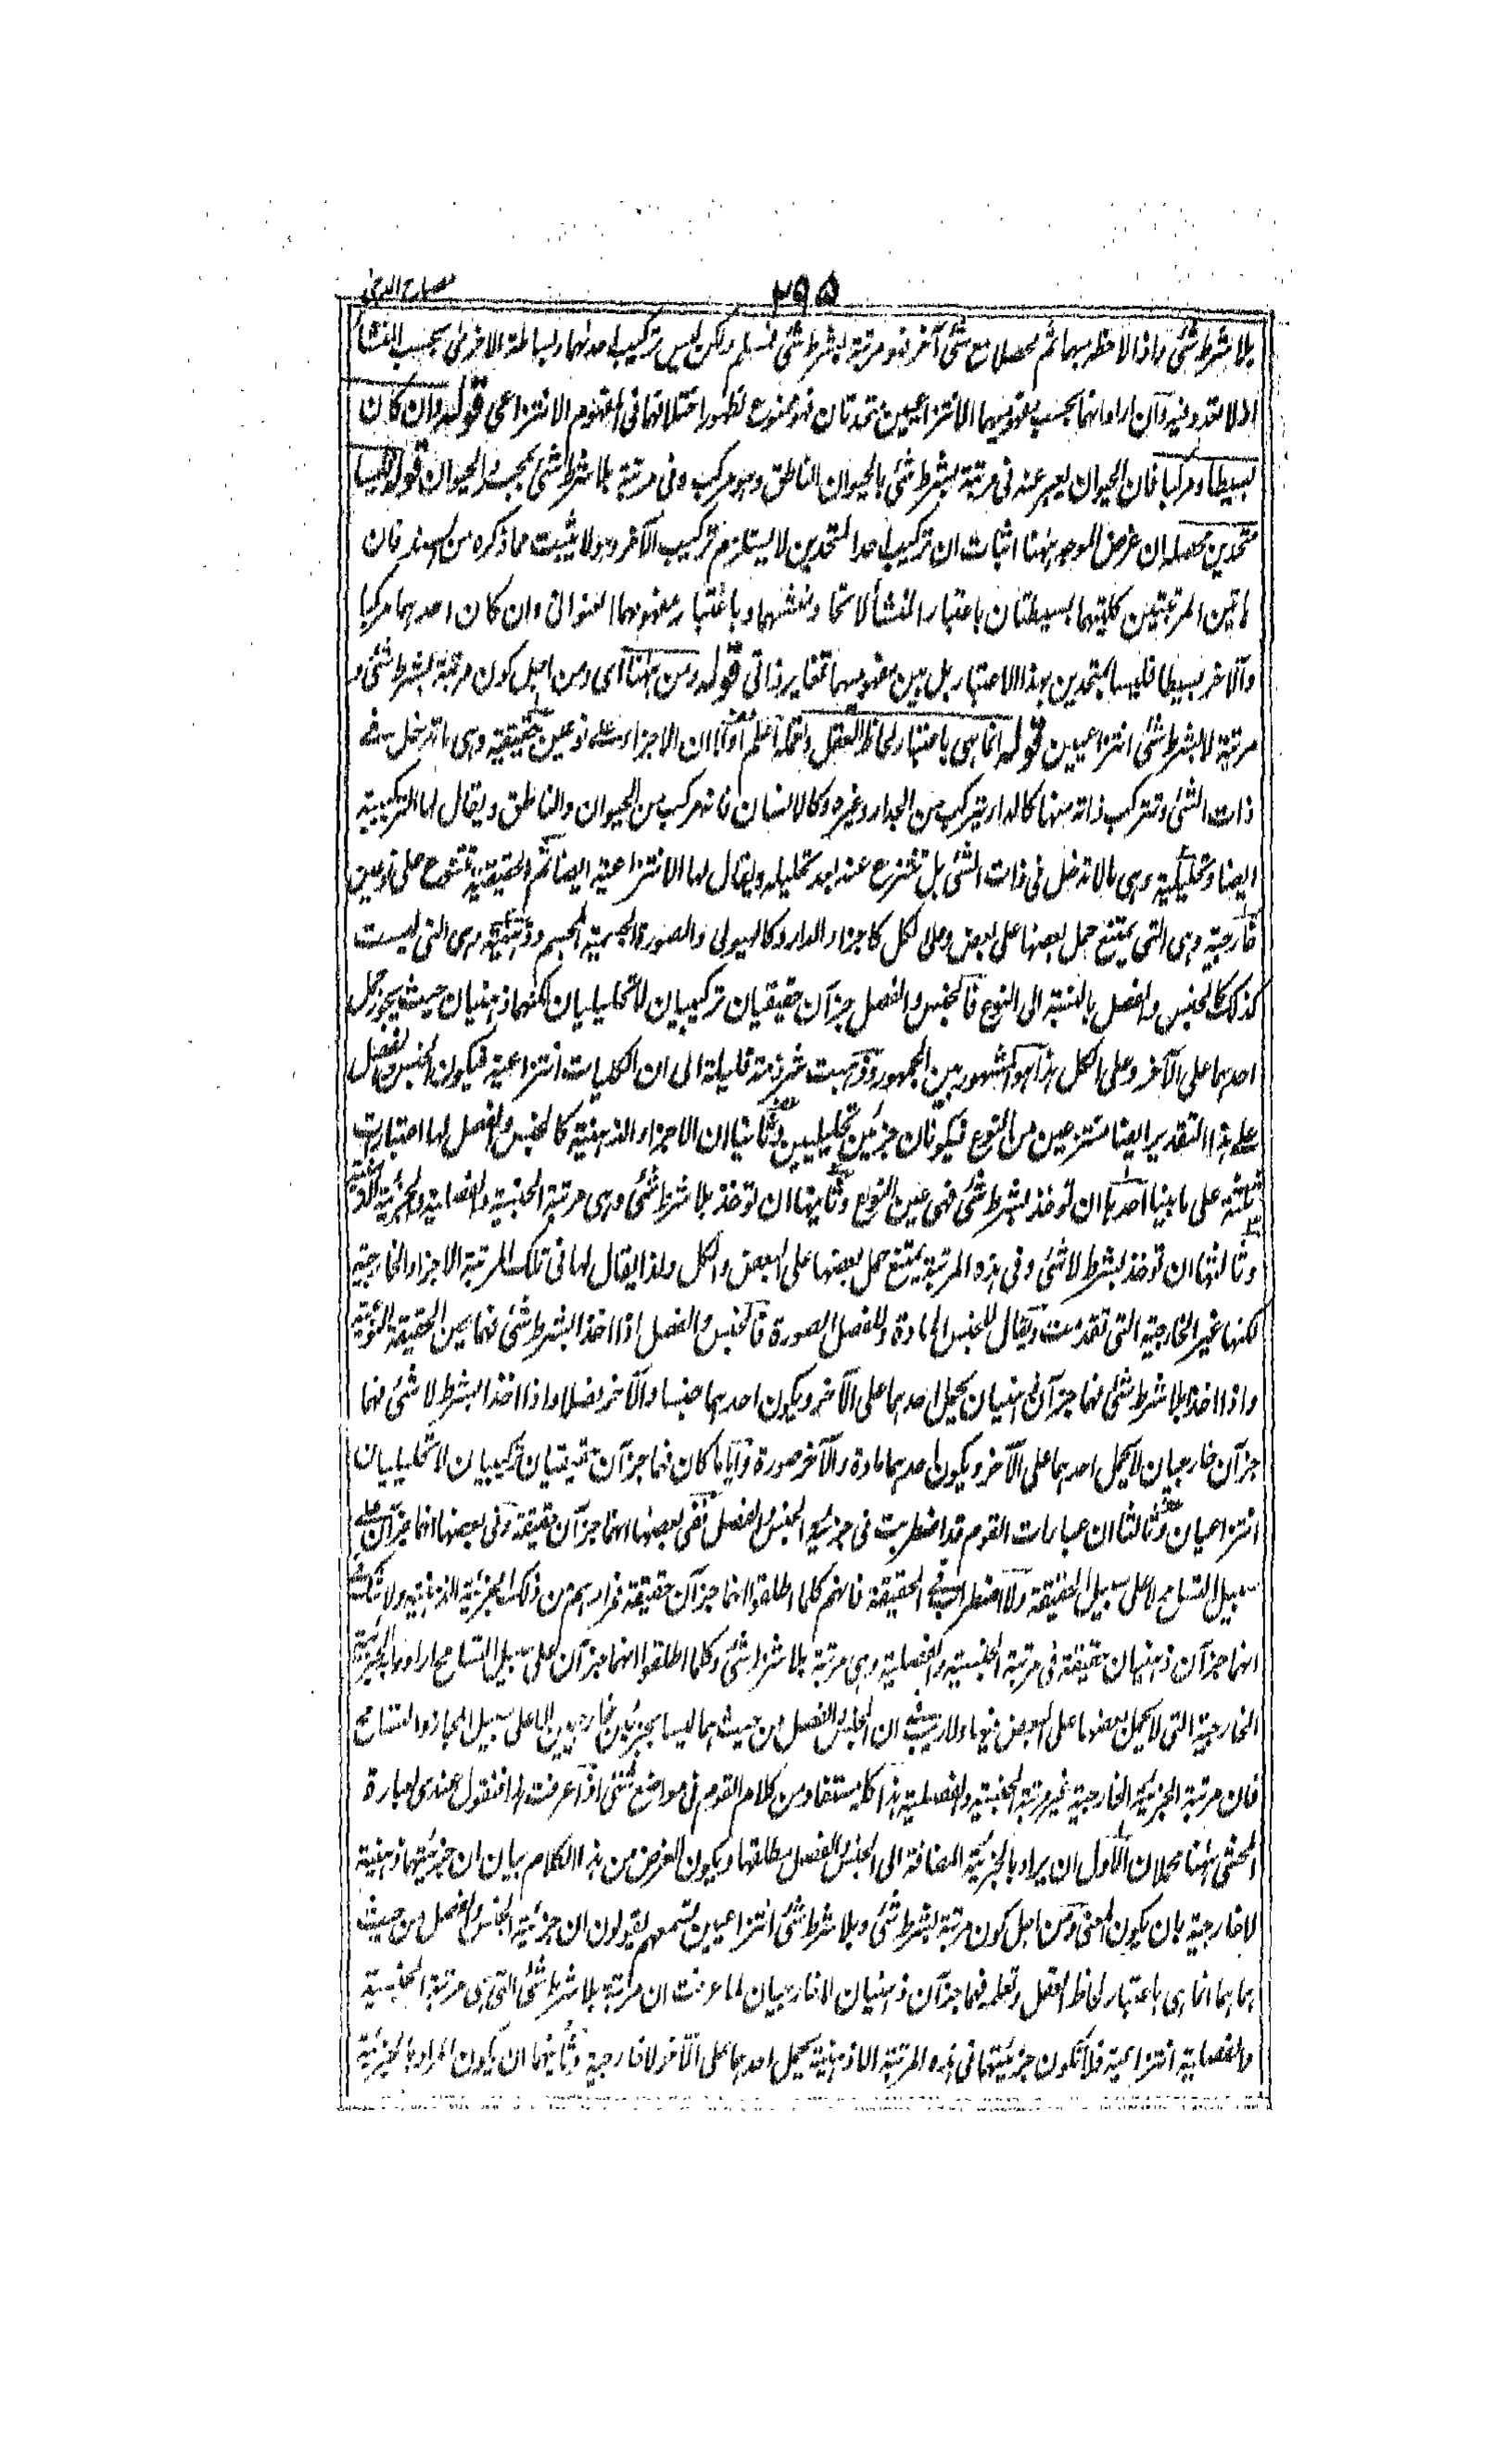 مصباح الدجى
٢٩٥
بلا شرط شئ واذا لاحظ بهاثم محصلا مع شئ آخر فهو مرتبة بشرط شئ فمسلم ولكن ليس تركيب احدهما وبساطة الاخرى بحسب المنشأ
اذ لا تعدد فيه وآن ارادانهما بحسب مفهوميهما الانتزاعيين متحدتان فهو ممنوع لظهور اختلافهما فى المفهوم الانتزاعى قوله وان كان
بسيطا ومركبا فان الحيوان يعبر عنه فى مرتبة بشرط شئ بالحيوان الناطق وهو مركب وفى مرتبة بلا شرط شئ بمجرد الحيوان قوله ليسا
متحدين محصله ان غرض الموجه ههنا اثبات ان تركيب احد المتحدين لا يستلزم تركيب الآخر وهو لا يثبت مما ذكره من السند فان
هاتين المرتبتين كلتيهما بسيطتان باعتبار المنشأ لاتحاد منشئهما وباعتبار مفهومهما العنوانى وان كان احدهما مركبا
والآخر بسيطا فليسا بمتحدين بهذا الاعتبار بل بين مفهوميهما تغاير ذاتى قوله ومن ههنا اى ومن اجل كون مرتبة بشرط شئ و
مرتبة لا بشرط شئ انتزاعيين قوله انما هى باعتبار لحاظ العقل وتعمله آعلم اولا ان الاجزاء على نوعين حقيقية وهى ما تدخل فى
ذات الشئ وتتركب ذاته منها كالدار يتركب من الجدار وغيره وكالانسان فانه مركب من الحيوان والناطق ويقال لها التركيبية
ايضا وتحليلية وهى ما لا تدخل فى ذات الشئ بل تنتزع عنه بعد تحليله ويقال لها الانتزاعية ايضا ثم الحقيقية تتنوع على نوعين
خارجية وهى التى يمتنع حمل بعضها على بعض وعلى الكل كاجزاء الدار وكالهيولى والصورة الجسمية للجسم وذهنية وهى التى ليست
كذلك كالجنس والفصل بالنسبة الى النوع فالجنس والفصل جزآن حقيقيان تركيبيان لا تحليليان لكنهما ذهنيان حيث يجوز حمل
احدهما على الآخر وعلى الكل هذا هو المشهور بين الجمهور وذهبت شرذمة قليلة الى ان الكليات انتزاعية فيكون الجنس والفصل
على هذا التقدير ايضا منتزعين من النوع فيكونان جزئين تحليليين وثانيا ان الاجزاء الذهنية كالجنس والفصل لها اعتبارات
ثلثة على ما بينا احدها ان توخذ بشرط شئ فهى عين النوع وثانيها ان توخذ بلا شرط شئ وهى مرتبة الجنسية والفصلية والجزئية الذهنية
وثالثها ان توخذ بشرط لا شئ وفى هذه المرتبة يمتنع حمل بعضها على البعض والكل ولذا يقال لها فى تلك المرتبة الاجزاء الخارجية
لكنها غير الخارجية التى تقدمت ويقال للجنس المادة وللفصل الصورة فالجنس والفصل اذا اخذا بشرط شئ فهما عين الحقيقة النوعية
واذا اخذا بلا شرط شئ فهما جزآن ذهنيان يحمل احدهما على الآخر ويكون احدهما جنسا والآخر فصلا واذا اخذا بشرط لا شئ فهما
جزآن خارجيان لا يحمل احدهما على الآخر ويكون احدهما مادة والآخر صورة وآيا ما كان فهما جزآن حقيقيان تركيبيان لا تحليليان
انتزاعيان وثالثا ان عبارات القوم قد اضطربت فى جزئية الجنس والفصل ففى بعضها انهما جزآن حقيقة وفى بعضها انهما جزآن على
سبيل التسامح لا على سبيل الحقيقة ولا اضطراب فى الحقيقة فانهم كلما اطلقوا انهما جزآن حقيقة فمرادهم من ذلك الجزئية الذهنية ولا شك
انهما جزآن ذهنيان حقيقة فى مرتبة الجنسية والفصلية وهى مرتبة بلا شرط شئ وكلما اطلقوا انهما جزآن على سبيل التسامح ارادوا بالجزئية
الخارجية التى لا يحمل بعضها على البعض فيها ولا ريب ان الجنس والفصل من حيث هما ليسا بجزئين خارجيين الا على سبيل المجاز والتسامح
فان مرتبة الجزئية الخارجية غير مرتبة الجنسية والفصلية هذا كله يستفاد من كلام القوم فى مواضع شتى اذا عرفت هذا فنقول عندى لعبارة
المحشى ههنا محملان الاول ان يراد بالجزئية المضافة الى الجنس والفصل مطلقها ويكون الغرض من هذا الكلام بيان ان جزئيتهما ذهنية
لا خارجية بان يكون المعنى ومن اجل كون مرتبة بشرط شئ وبلا شرط شئ انتزاعيين تسمعهم يقولون ان جزئية الجنس والفصل من حيث
هما هما انما هى باعتبار لحاظ العقل وتعمله فهما جزآن ذهنيان لا خارجيان لما عرفت ان مرتبة بلا شرط شئ التى هى مرتبة الجنسية
والفصلية انتزاعية فلا تكون جزئيتهما فى هذه المرتبة الا ذهنية يحمل احدهما على الآخر لا خارجية وثانيهما ان يكون المراد بالجزئية